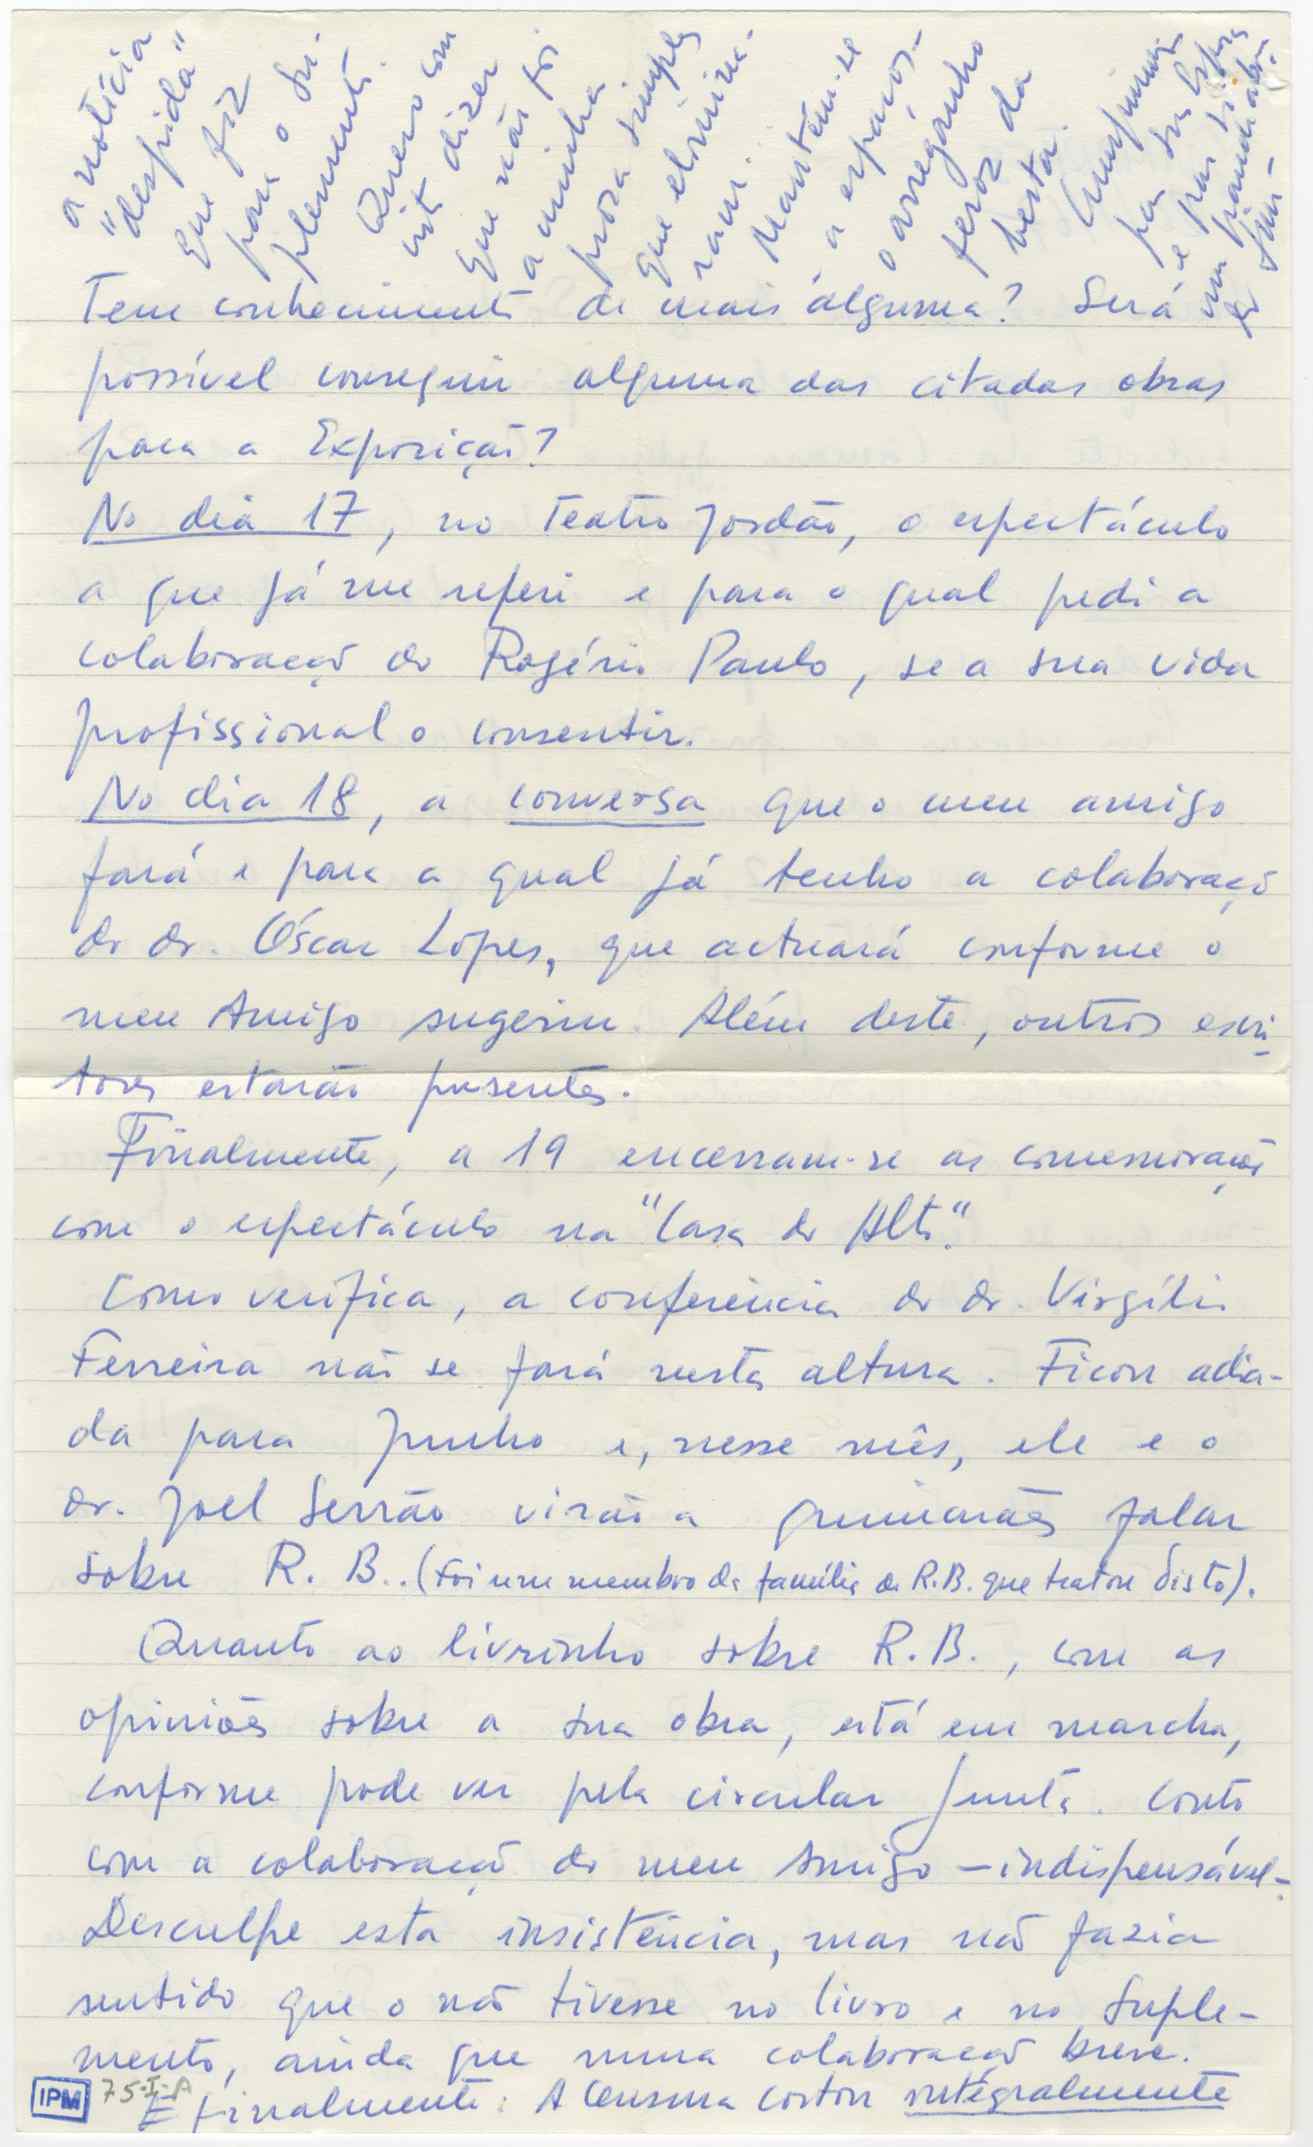 Tem conhecimento de mais alguma? Será
possível conseguir alguma das citadas obras
para a Exposição?
No dia 17, no Teatro Jordão, o espectáculo
a que já me referi e para o qual pedi a
colaboração do Rogério Paulo, se a sua vida
profissional o consentir.
No dia 18, a conversa que o meu amigo
fará e para a qual já tenho a colaboração
do dr. Óscar Lopes, que actuará conforme o
meu Amigo sugeriu. Além deste, outros escri-
tores estarão presentes.
Finalmente, a 19 encerram-se as comemorações
com o espectáculo na "Casa do Alto".
Como verifica, a conferência do dr. Virgílio
Ferreira não se fará nesta altura. Ficou adia-
da para Junho e, nesse mês, ele e o
dr. Joel Serrão virão a Guimarães falar
sobre R. B.. (Foi um membro da família de R.B. que tratou disto).
Quanto ao livrinho sobre R.B., com as
opiniões sobre a sua obra, está em marcha,
conforme pode ver pela circular junta. Conto
com a colaboração do meu Amigo — indispensável —.
Desculpe esta insistência, mas não fazia
sentido que o não tivesse no livro e no Suple-
mento, ainda que numa colaboração breve.
E finalmente: A Censura cortou integralmente
a notícia
"despida"
que fiz
para o Su-
plemento.
Quero com
isto dizer
que não foi
a minha
prosa simples
que elimina-
ram.
Mantém-se
a espaços
o arreganho
feroz da
besta.
Cumprimentos
IPM
75-I-A